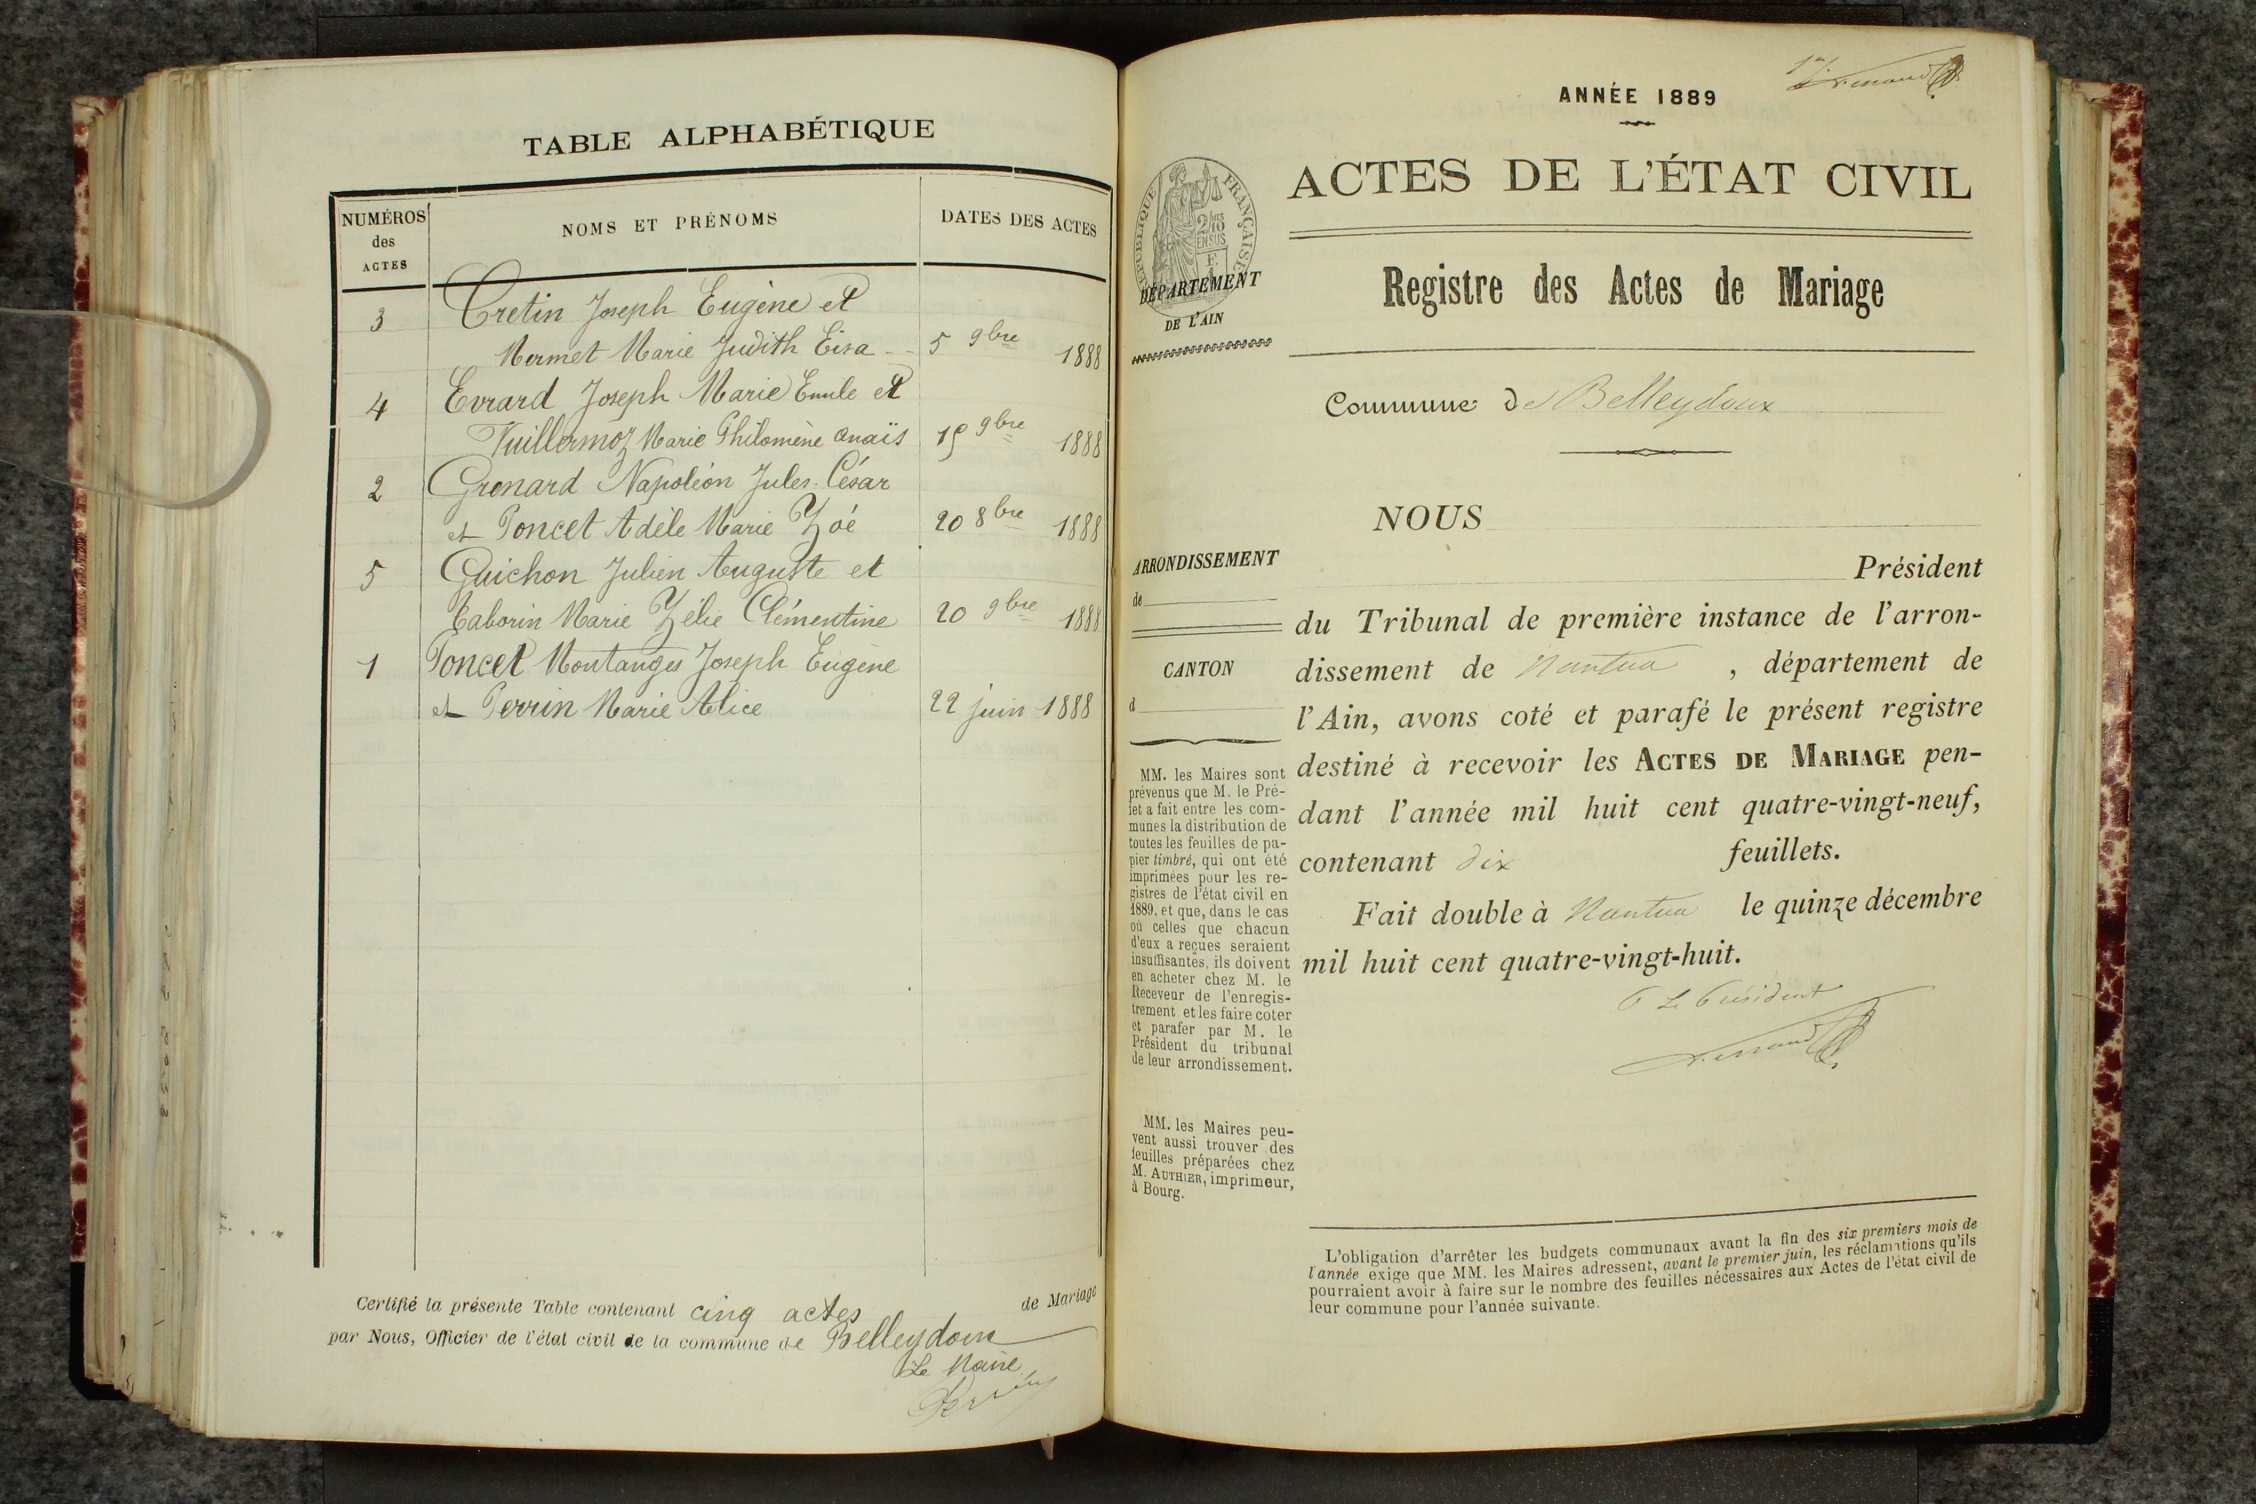 TABLE ALPHABÉTIQUE
NUMÉROS
des
ACTES
NOMS ET PRÉNOMS
DATES DES ACTES
3 Cretin Joseph Eugène et
Mermet Marie Judith Eisa 5 9bre 1888
4 Evrard Joseph Marie Emile et
Vuillermoz Marie Philomène Anaïs 15 9bre 1888
2 Grenard Napoléon Jules César
et Poncet Adèle Marie Zoé 20 8bre 1888
5 Guichon Julien Auguste et
Taborin Marie Zélie Clémentine 20 9bre 1888
1 Poncet Montanges Joseph Eugène
et Perrin Marie Alice 22 juin 1888
Certifié la présente Table contenant cinq actes de Mariage
par Nous, Officier de l'état civil de la commune de Belleydoux
Le Maire
ANNÉE 1889
ACTES DE L'ÉTAT CIVIL
RÉPUBLIQUE FRANÇAISE
DÉPARTEMENT
DE L'AIN
Registre des Actes de Mariage
Commune de Belleydoux
NOUS
Président
du Tribunal de première instance de l'arron-
dissement de Nantua, département de
l'Ain, avons coté et parafé le présent registre
destiné à recevoir les ACTES DE MARIAGE pen-
dant l'année mil huit cent quatre-vingt-neuf,
contenant dix feuillets.
Fait double à Nantua le quinze décembre
mil huit cent quatre-vingt-huit.
Le Président
ARRONDISSEMENT
de
CANTON
d
MM. les Maires sont
prévenus que M. le Pré-
fet a fait entre les com-
munes la distribution de
toutes les feuilles de pa-
pier timbré, qui ont été
imprimées pour les re-
gistres de l'état civil en
1889, et que, dans le cas
où celles que chacun
d'eux a reçues seraient
insuffisantes, ils doivent
en acheter chez M. le
Receveur de l'enregis-
trement et les faire coter
et parafer par M. le
Président du tribunal
de leur arrondissement.
MM. les Maires peu-
vent aussi trouver des
feuilles préparées chez
M. AUTHIER, imprimeur,
à Bourg.
L'obligation d'arrêter les budgets communaux avant la fin des six premiers mois de
l'année exige que MM. les Maires adressent, avant le premier juin, les réclamations qu'ils
pourraient avoir à faire sur le nombre des feuilles nécessaires aux Actes de l'état civil de
leur commune pour l'année suivante.